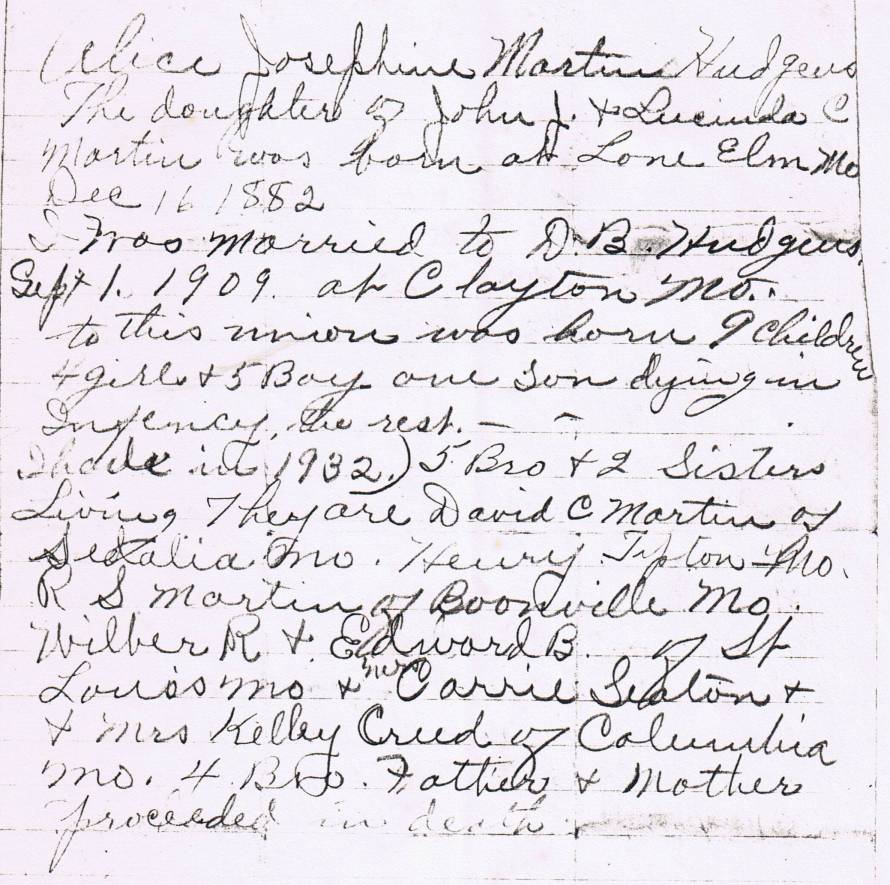 Alice Josephine Martin Hudgens
The doughter of John J. & Lucinda C
Martin was born at Lone Elm Mo
Dec 16 1882
I Was Married to D. B. Hudgens.
Sept 1. 1909. at Clayton Mo.
to this union was born 9 children
4 girl & 5 Boy one son dying in
Infency, the rest. - -
I have in 1932.) 5 Bro & 2 Sisters
Living They are David C Martin of
Sedalia Mo. Henry Tipton Mo.
R S Martin of Boonville Mo.
Wilber R & Edward B. of St
Louis Mo & mrs Carrie Seaton &
& Mrs Kelley Creed of Columbia
Mo. 4 Bro. Father & Mother
proceeded in death.